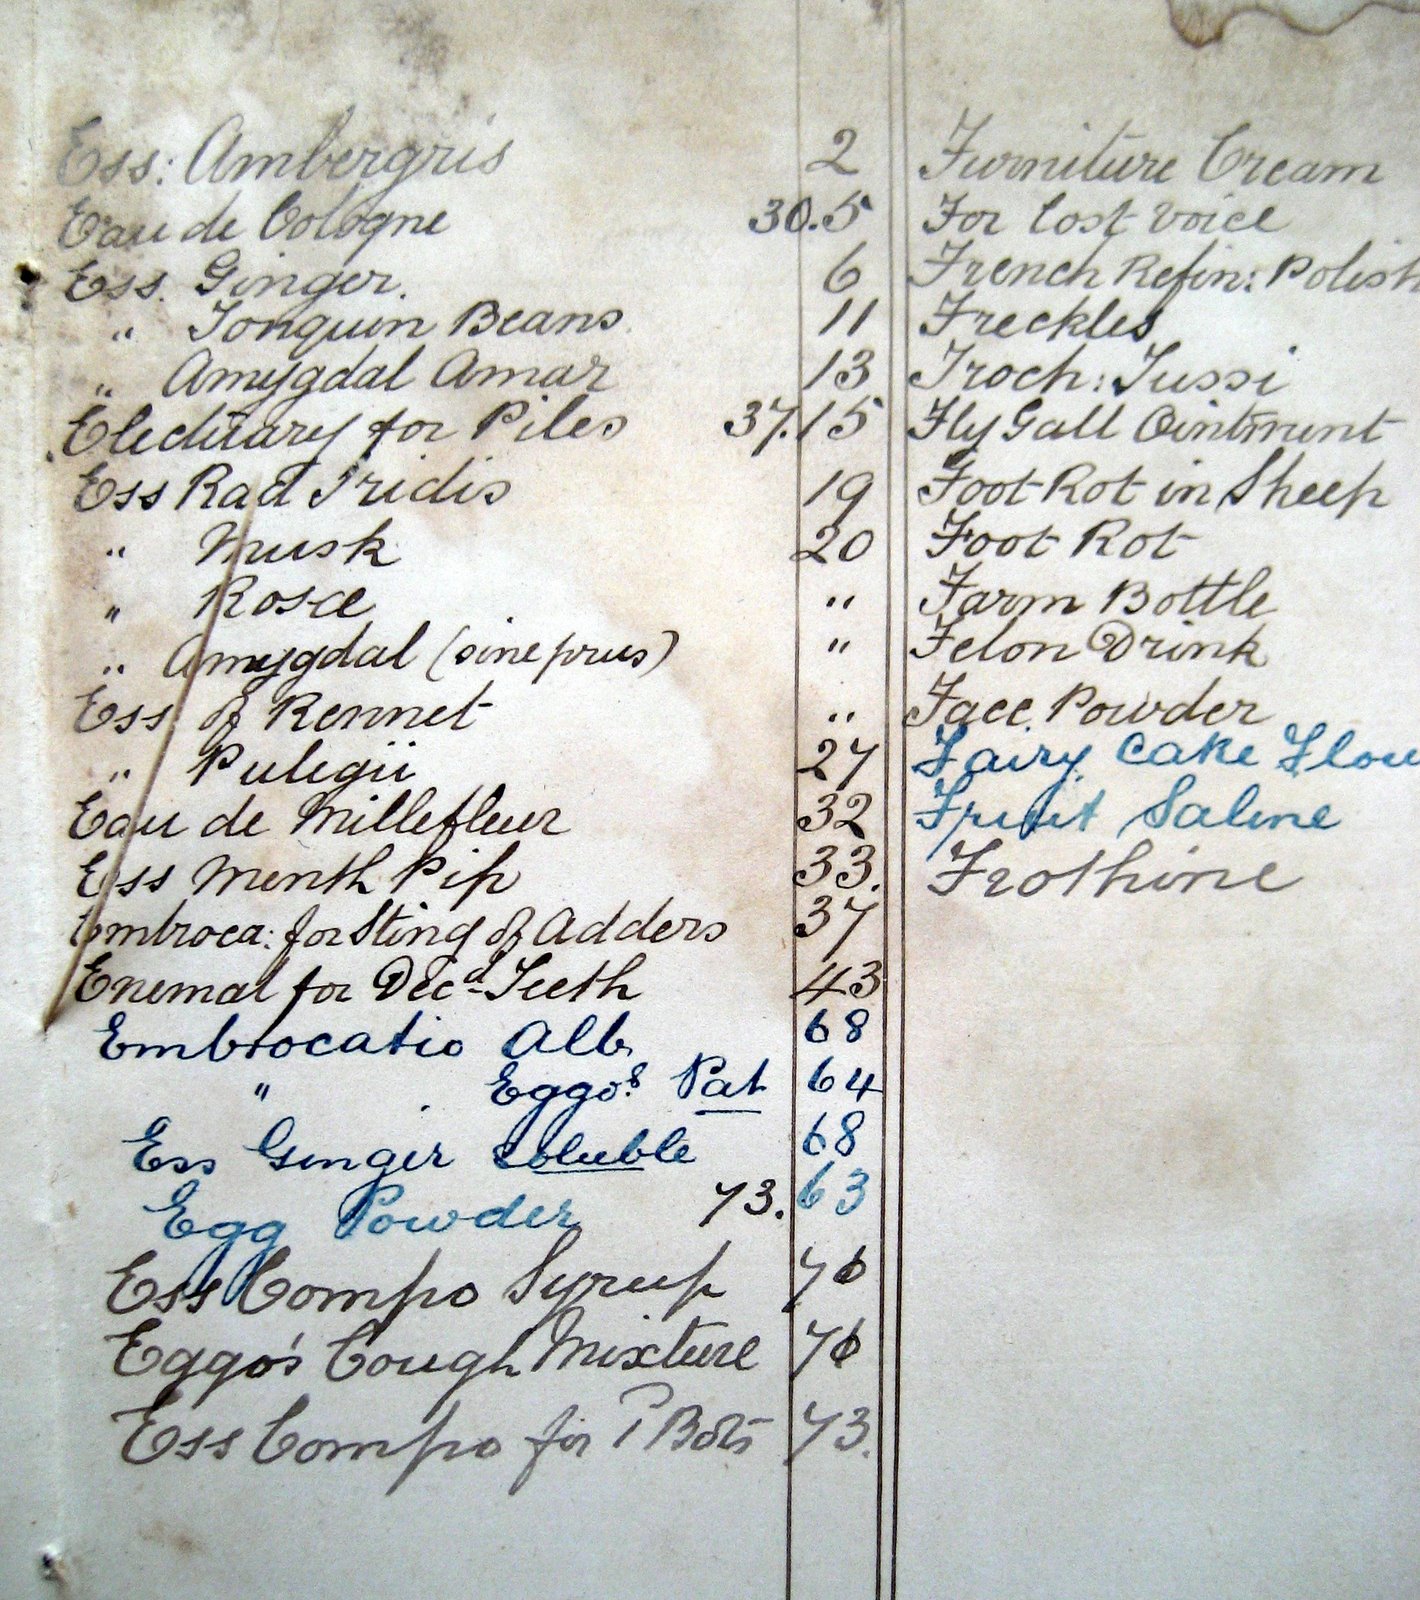 Ess: Ambergris 2
Eau de Cologne 30.5
Ess. Ginger. 6
" Tonquin Beans 11
" Amygdal Amar 13
Electuary for Piles 37.15
Ess Rad Iridis 19
" Musk 20
" Rosæ "
" Amygdal (sine prus) "
Ess of Rennet "
" Pulegii 27
Eau de Millefleur 32
Ess Menth Pip 33.
Embroca: for Sting of Adders 37
Enemal for Decd Teeth 43
Embrocatio Alb 68
" Eggo's Pat 64
Ess Ginger Soluble 68
Egg Powder 73.63
Ess Compo Syrup 70
Eggo's Cough Mixture 70
Ess Compo for P Bots 73.
Furniture Cream
For Lost Voice
French Refin: Polish
Freckles
Troch: Tussi
Fly Gall Ointment
Foot Rot in Sheep
Foot Rot
Farm Bottle
Felon Drink
Face Powder
Fairy Cake Flou
Fruit Saline
Frothine